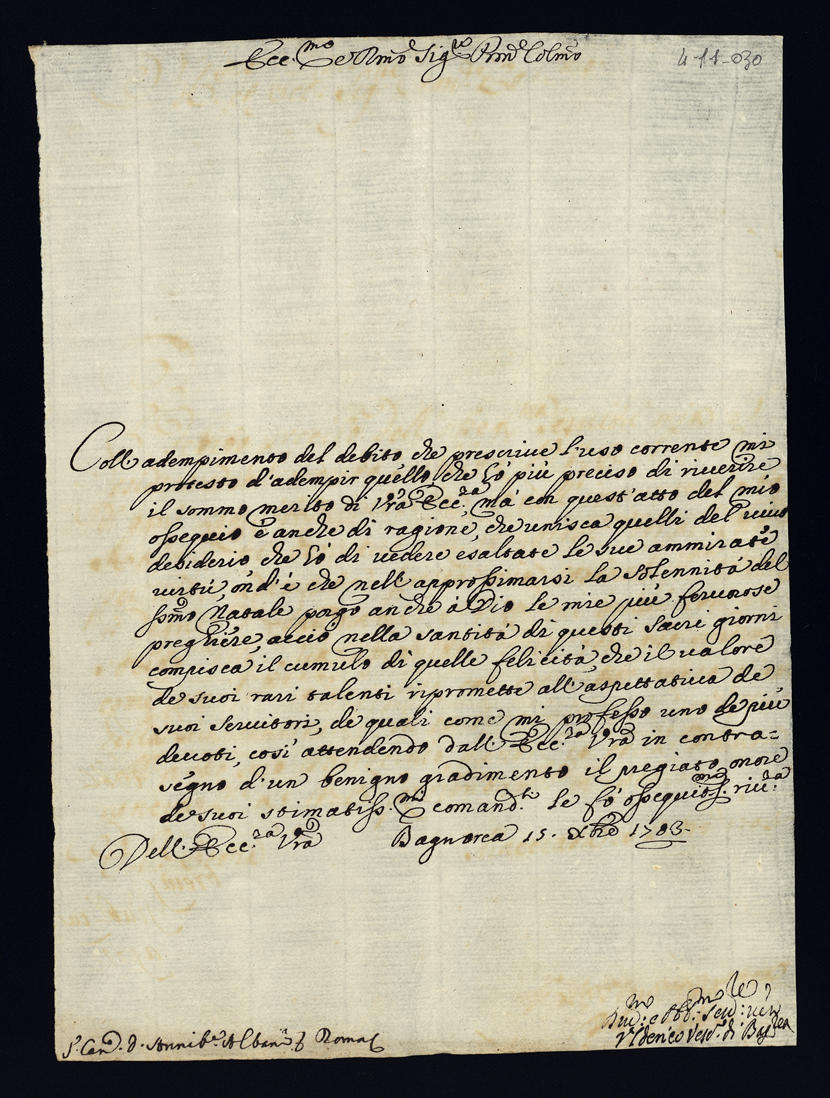 Ecc.mo e Rmo Sigre Pron Colmo
4-11-030
Coll adempimento del debito che prescrive l'uso corrente mi
protesto d'adempir quello, che hò più preciso di riverire
il sommo merito di Vrã Ecc.za, mà con quest'atto del mio
ossequio è anche di ragione, che unisca quelli del vivo
desiderio che hò di vedere esaltate le sue ammirate
virtù, ond'è che nell'approssimarsi la solennità del
Ssmo Natale porgo anche à Dio le mie più fervorose
preghiere, acciò nella santità di questi sacri giorni
compisca il cumulo di quelle felicità, che il valore
de suoi rari talenti ripromette all'aspettativa de
suoi servitori, de quali come mi professo uno de più
devoti, così attendendo dall'Ecc.za Vrã in contra=
segno d'un benigno gradimento il pregiato onore
de suoi stimatiss.mi comand.ti le fò ossequios.ma riv.za
Dell'Ecc.za Vrã Bagnorea 15. Xbre 1703.
Div.mo e Obb.mo Serv.re vero
Vesc.o di Bag.rea
S.r Can. D. Annib.e Albani Roma